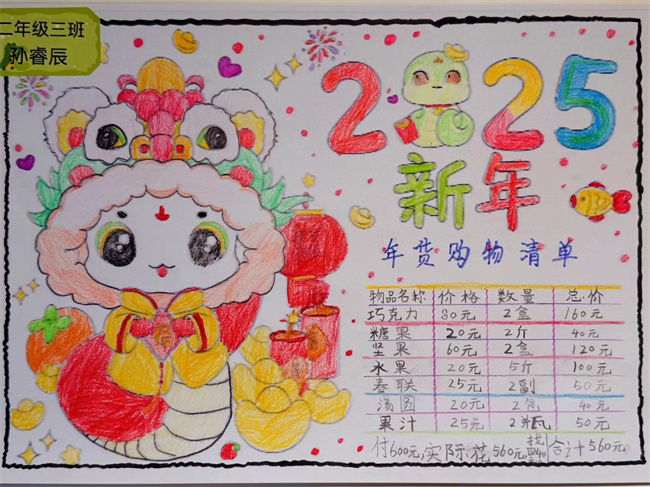 二年级三班
孙睿辰
2025
新年
年货购物清单
物品名称 价格 数量 总价
巧克力 80元 2盒 160元
糖果 20元 2斤 40元
坚果 60元 2盒 120元
水果 20元 5斤 100元
春联 25元 2副 50元
汤圆 20元 2包 40元
果汁 25元 2瓶 50元
付600元,实际花560元 找 40 合计560元